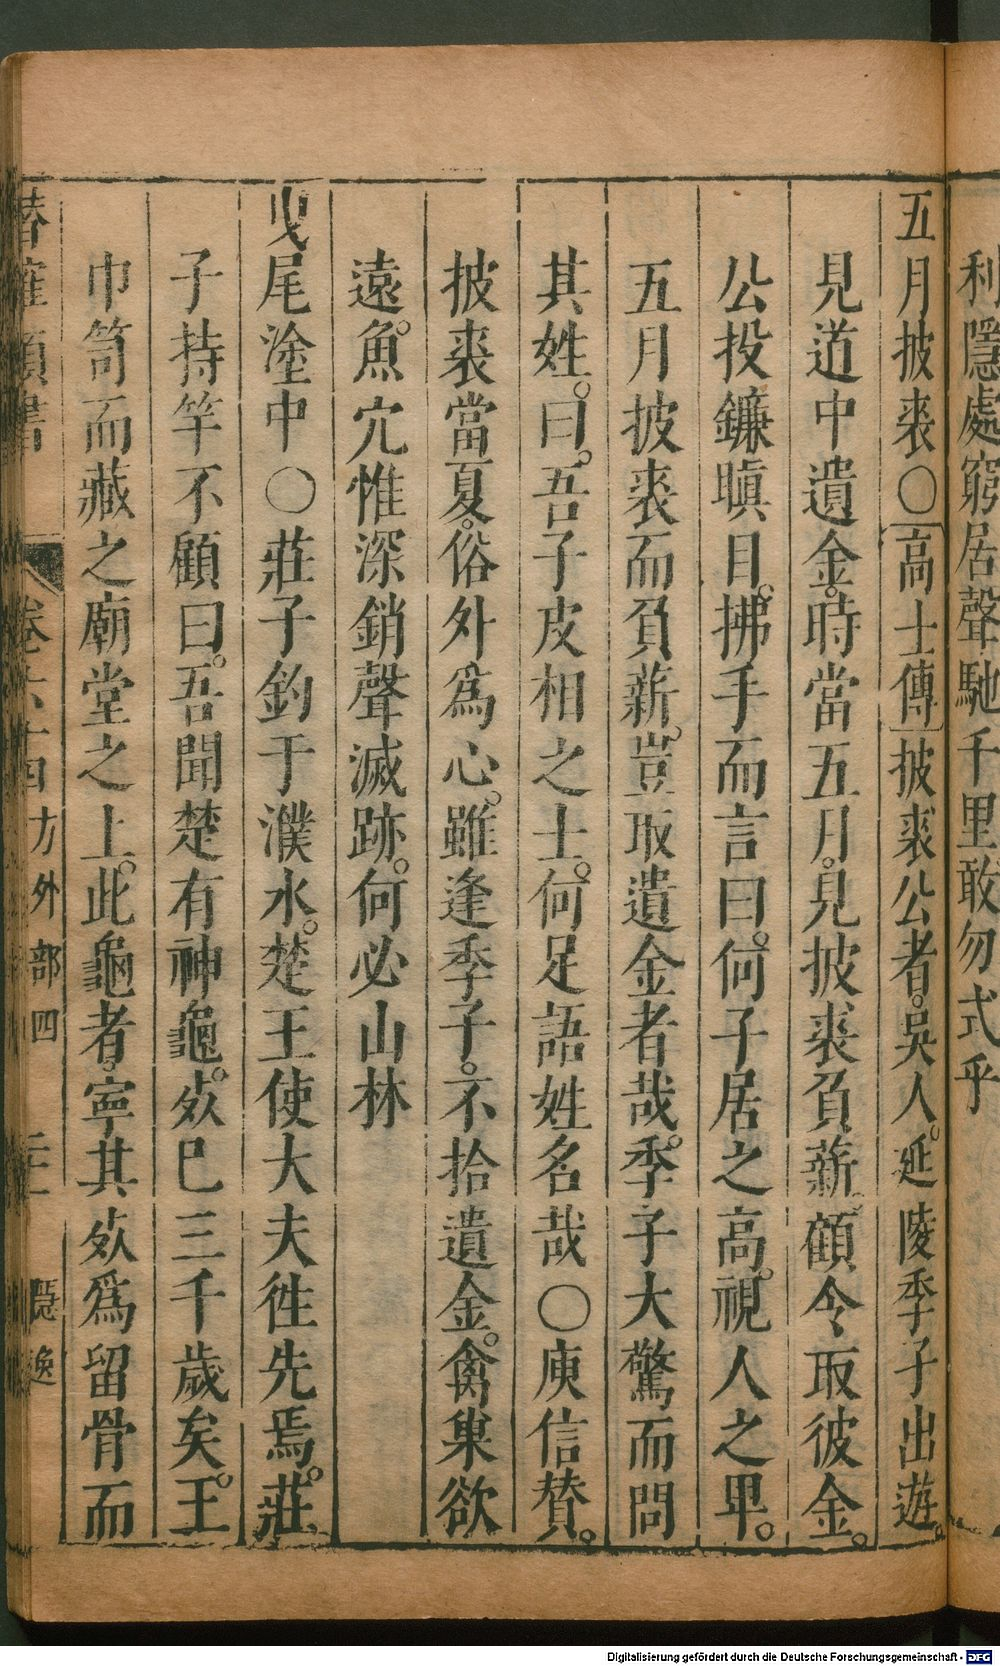 利隱處窮居聲馳千里敢勿式乎
五月披裘〇[高士傳]披裘公者。吳人。延陵季子出遊。
見道中遺金。時當五月。見披裘負薪。顧令取彼金。
公投鐮瞋目。拂手而言曰。何子居之高。視人之卑。
五月披裘而負薪。豈取遺金者哉。季子大驚而問
其姓。曰。吾子皮相之士。何足語姓名哉〇庾信贊。
披裘當夏。俗外爲心。雖逢季子。不拾遺金。禽巢欲
遠。魚穴惟深。銷聲滅跡。何必山林
曳尾塗中〇莊子釣于濮水。楚王使大夫徃先焉。莊
子持竿不顧曰。吾聞楚有神龜。㱙巳三千歲矣。王
巾笥而藏之廟堂之上。此龜者。寧其㱙爲留骨而
卷六十四方外部四 隱逸
Digitalisierung gefördert durch die Deutsche Forschungsgemeinschaft - DFG